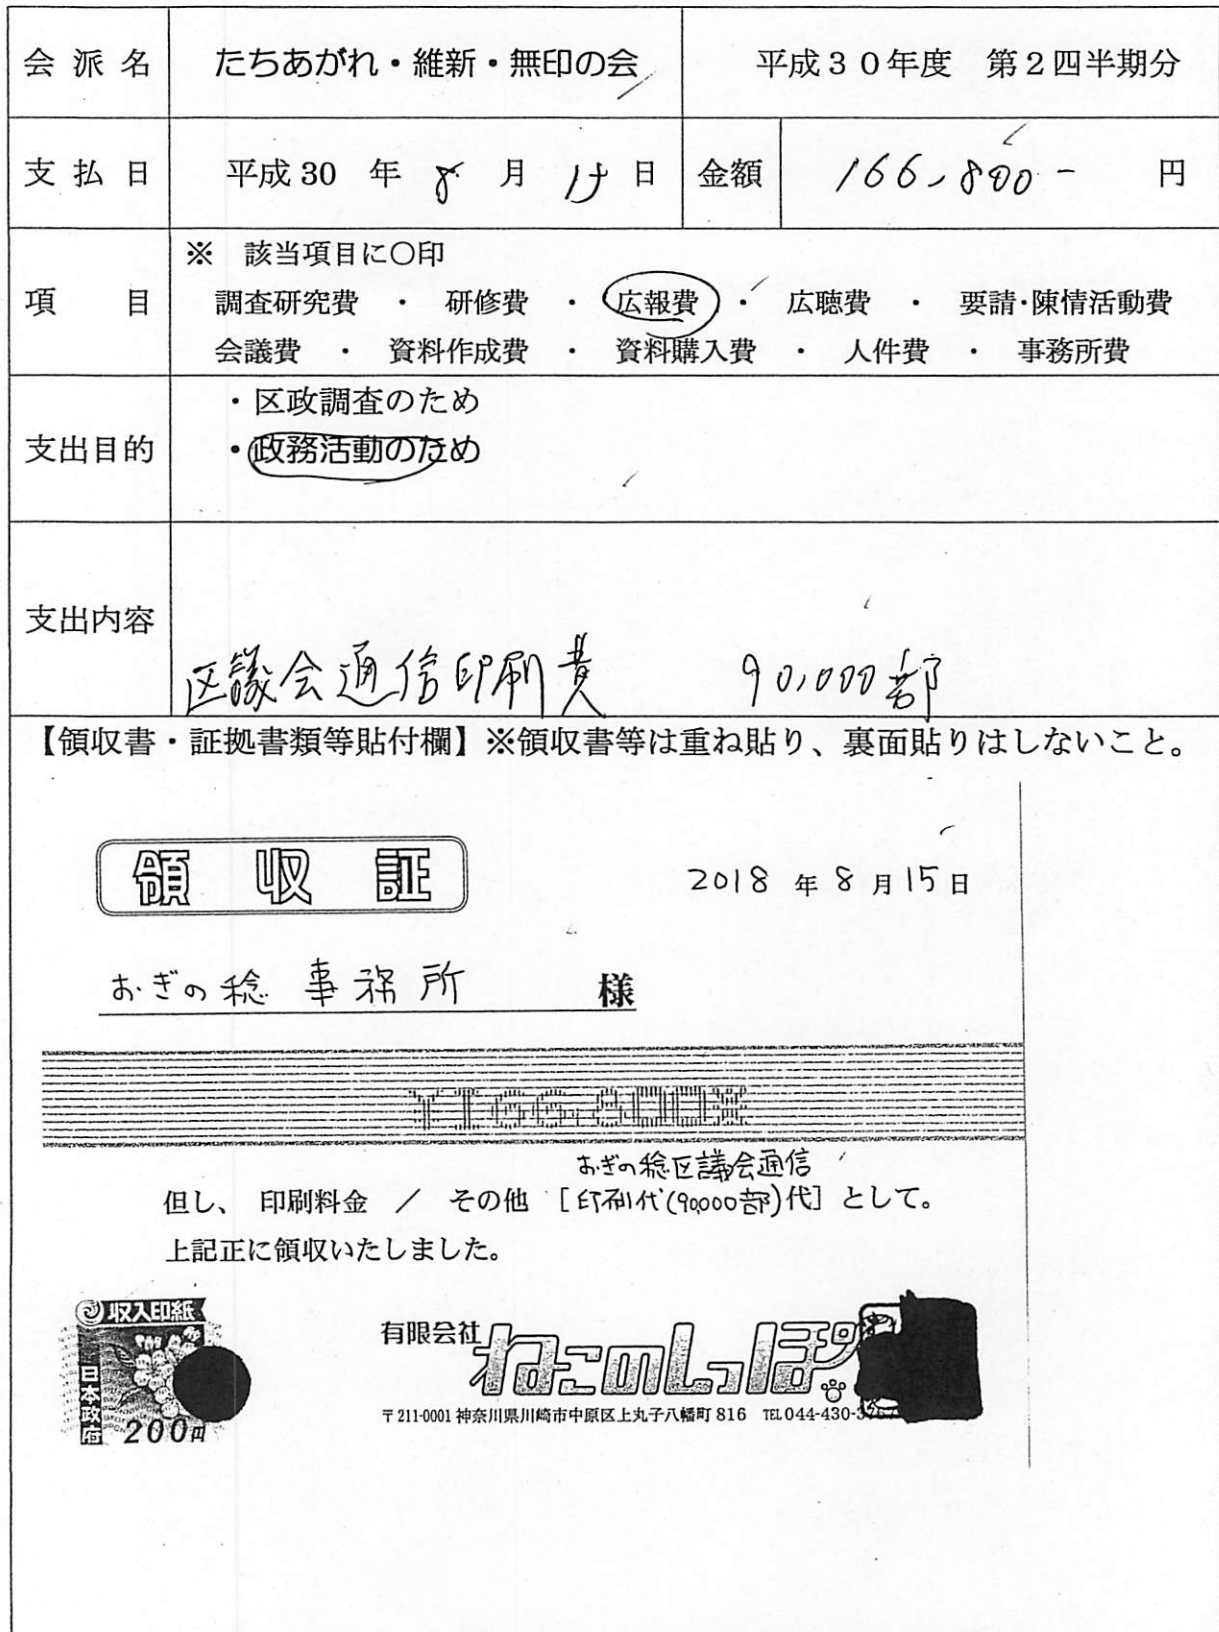 会派名 たちあがれ・維新・無印の会 平成30年度 第2四半期分
支払日 平成30年8月15日 金額 166,800- 円
※ 該当項目に○印
項目 調査研究費 ・ 研修費 ・ 広報費 ・ 広聴費 ・ 要請・陳情活動費
会議費 ・ 資料作成費 ・ 資料購入費 ・ 人件費 ・ 事務所費
・区政調査のため
支出目的 ・政務活動のため
支出内容
区議会通信印刷費 90,000部
【領収書・証拠書類等貼付欄】※領収書等は重ね貼り、裏面貼りはしないこと。
領収証 2018年8月15日
おぎの稔 事務所 様
¥166,800※
おぎの稔区議会通信
但し、 印刷料金 / その他 [印刷代(90,000部)代] として。
上記正に領収いたしました。
収入印紙
日本政府
200円
有限会社 ねこのしっぽ
〒211-0001 神奈川県川崎市中原区上丸子八幡町816 TEL 044-430-3767